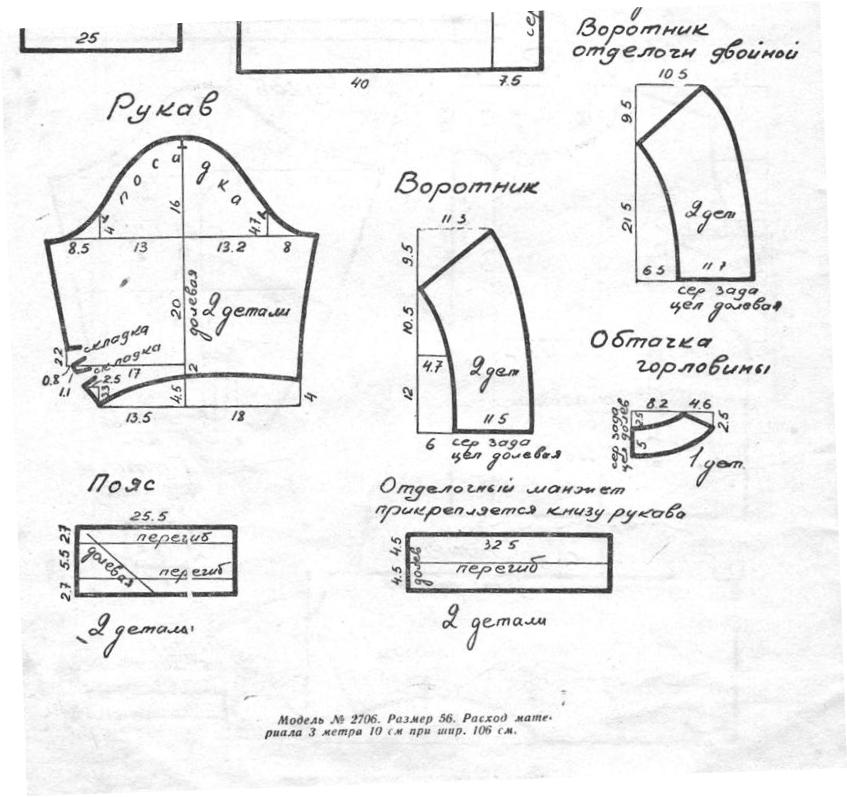 25
40
7.5
сер
Воротник
отделочн двойной
10 5
9 5
21 5
2 дет
6 5
11 7
сер зада
цел долевая
Рукав
посадка
16
4
4.7
8.5
13
13.2
8
20
долевая
2 детали
складка
складка
2.2
0.8
1
1.1
2.5
3.3
17
2
4.5
4
13.5
18
Воротник
11 3
9.5
10.5
4.7
12
2 дет
6
11 5
сер зада
цел долевая
Обтачка
горловины
8.2
4.6
2.5
2.5
5
сер зада
цел долев
1 дет.
Пояс
25.5
2.7
5.5
2.7
перегиб
долевая
перегиб
2 детали
Отделочный манжет
прикрепляется книзу рукава
32 5
4.5
4.5
долев
перегиб
2 детали
Модель № 2706. Размер 56. Расход мате-
риала 3 метра 10 см при шир. 106 см.